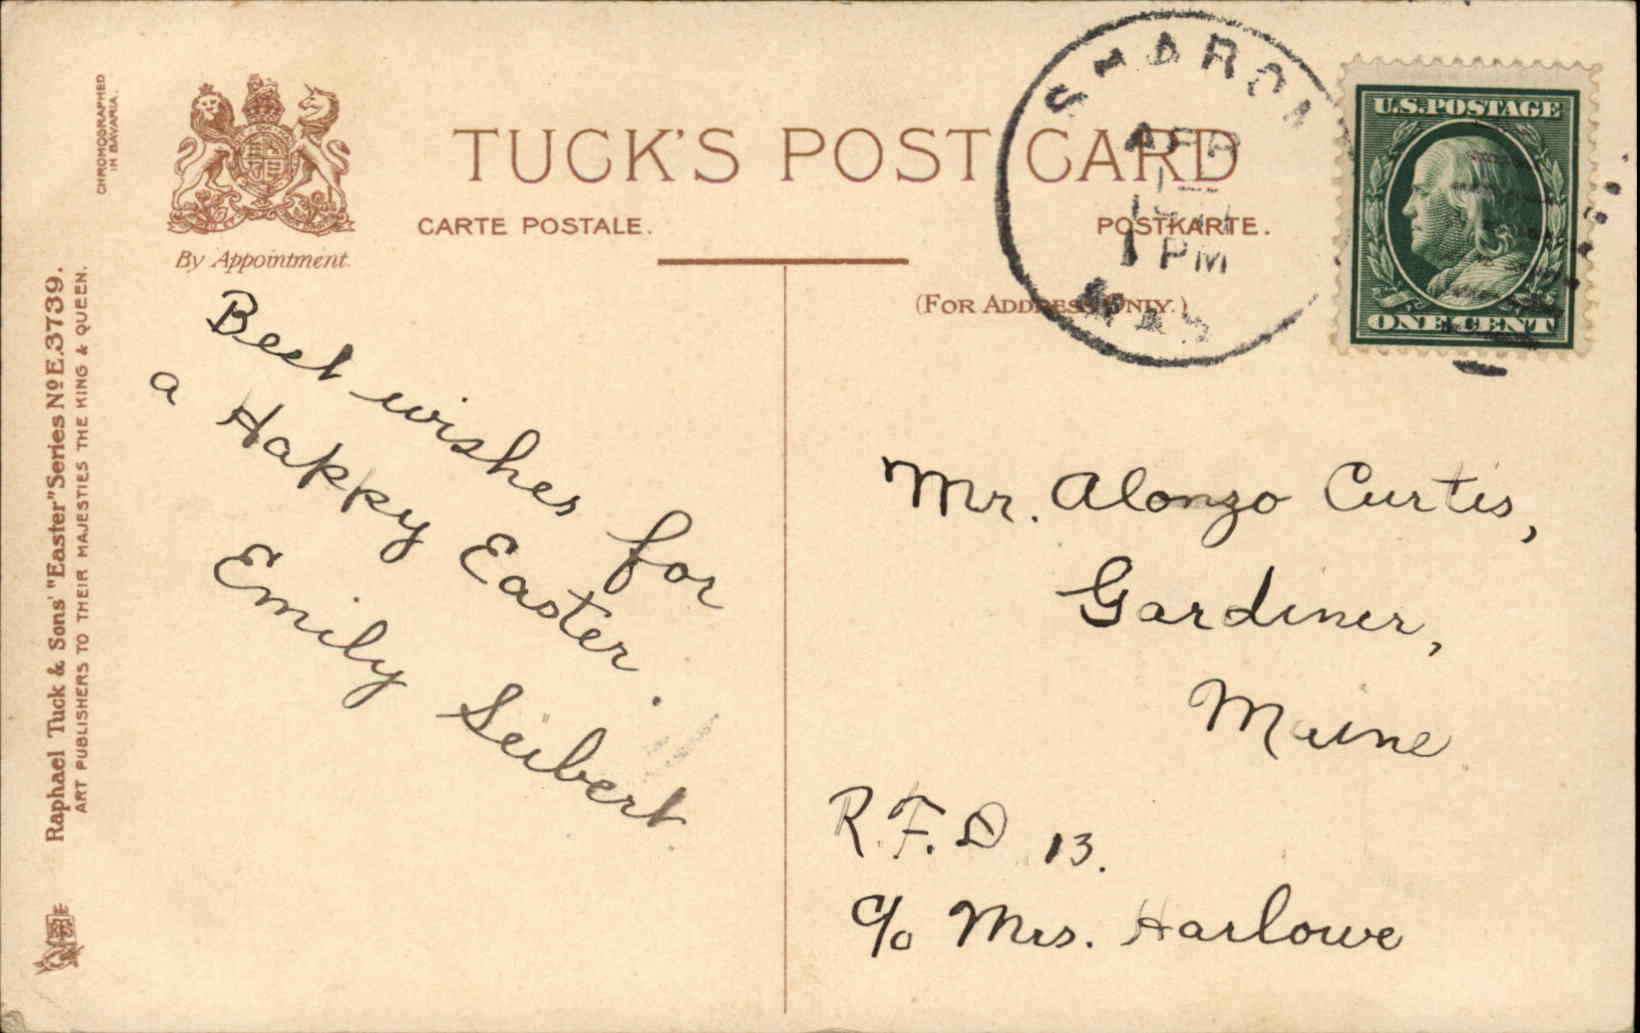 CHROMOGRAPHED
IN BAVARIA.
By Appointment.
TUCK'S POST CARD
CARTE POSTALE.
POSTKARTE.
(FOR ADDRESS ONLY.)
SHARON
APR
1 PM
MASS
U.S. POSTAGE
ONE CENT
Raphael Tuck & Sons' "Easter" Series No E.3739.
ART PUBLISHERS TO THEIR MAJESTIES THE KING & QUEEN.
Best wishes for
a Happy Easter.
Emily Seibert.
Mr. Alonzo Curtis,
Gardiner,
Maine
R.F.D 13.
c/o Mrs. Harlowe